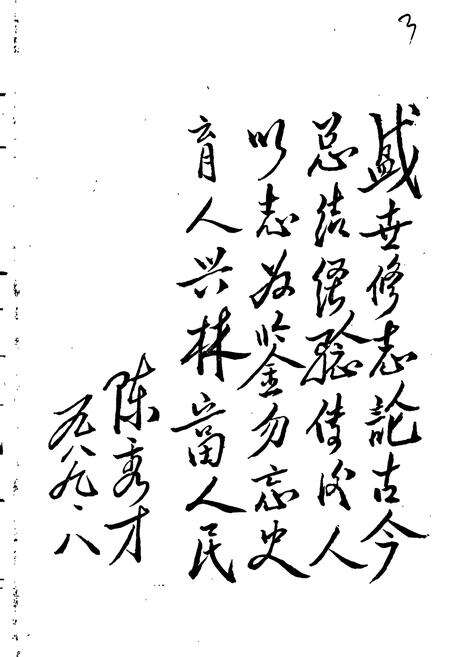 3
盛世修志論古今
总结经验传后人
以志为鉴勿忘史
育人兴林富人民
陈秀才
一九八九.八